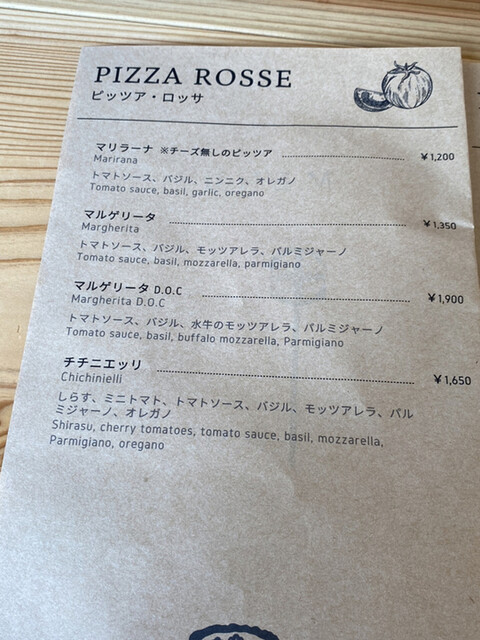 PIZZA ROSSE
ピッツア・ロッサ
マリラーナ ※チーズ無しのピッツア ¥1,200
Marirana
トマトソース、バジル、ニンニク、オレガノ
Tomato sauce, basil, garlic, oregano
マルゲリータ ¥1,350
Margherita
トマトソース、バジル、モッツアレラ、パルミジャーノ
Tomato sauce, basil, mozzarella, parmigiano
マルゲリータ D.O.C ¥1,900
Margherita D.O.C
トマトソース、バジル、水牛のモッツアレラ、パルミジャーノ
Tomato sauce, basil, buffalo mozzarella, Parmigiano
チチニエッリ ¥1,650
Chichinielli
しらす、ミニトマト、トマトソース、バジル、モッツアレラ、パル
ミジャーノ、オレガノ
Shirasu, cherry tomatoes, tomato sauce, basil, mozzarella,
Parmigiano, oregano